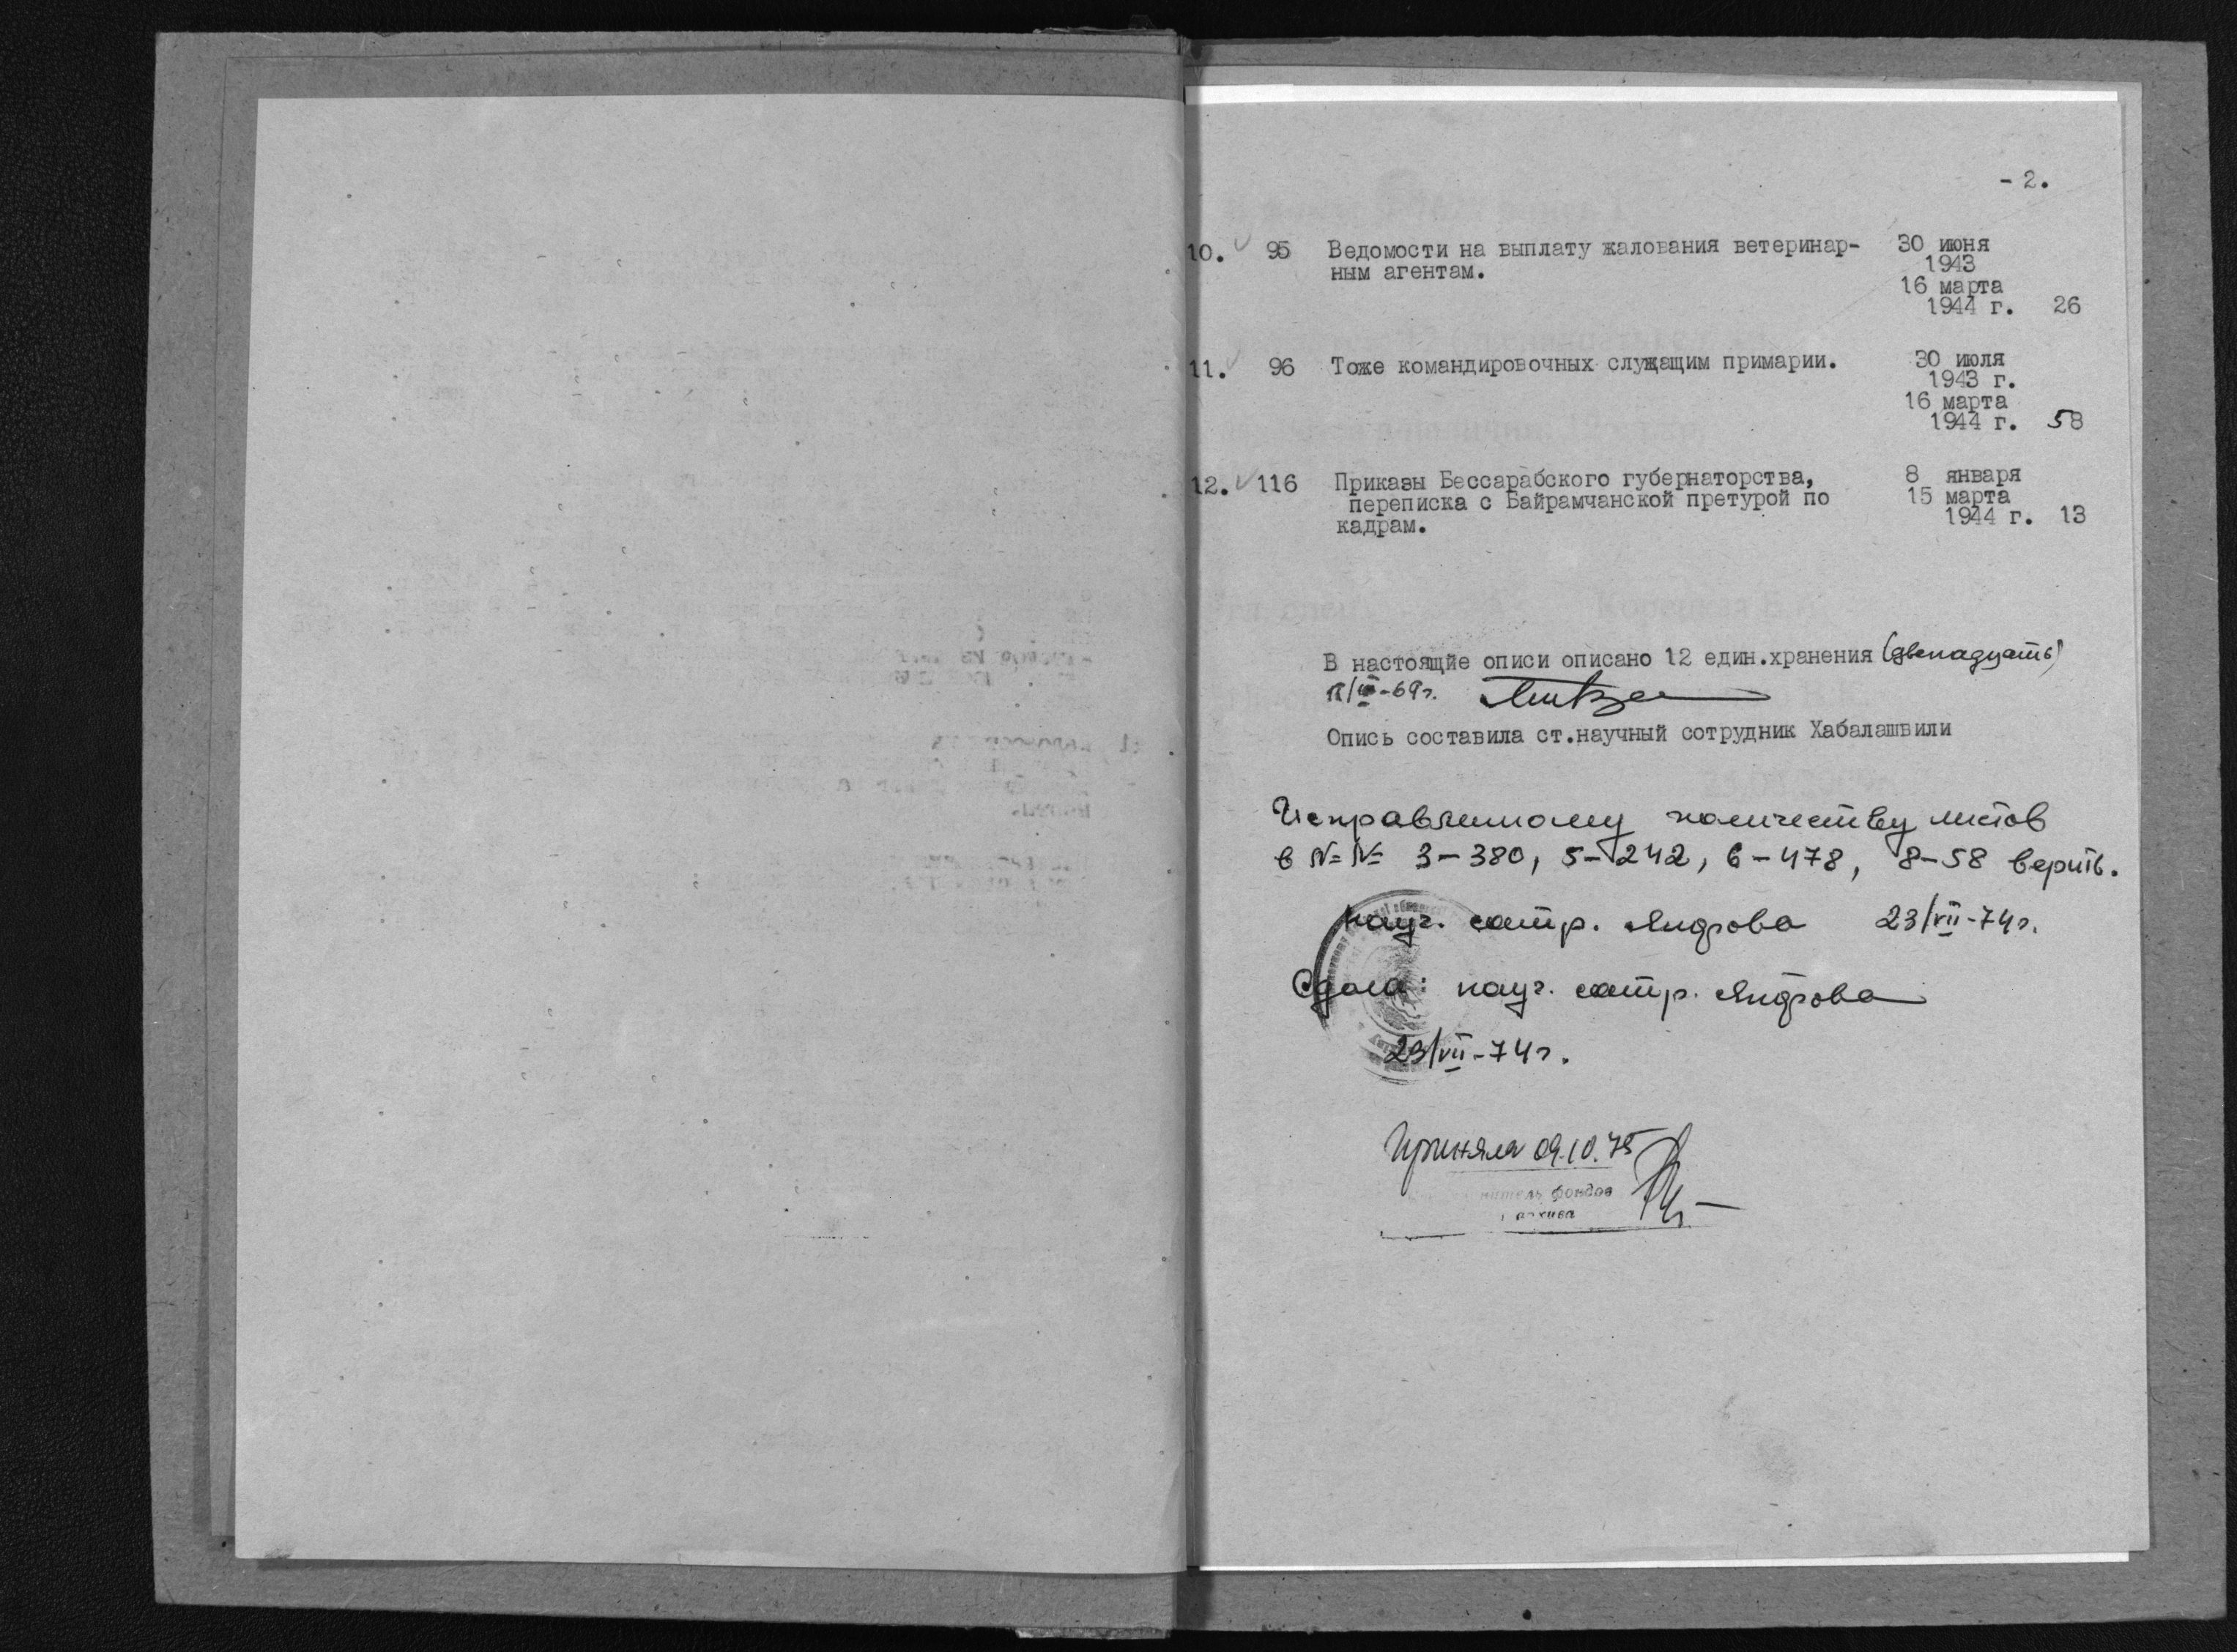 - 2.
10. 95 Ведомости на выплату жалования ветеринар- 30 июня
ным агентам. 1943
16 марта
1944 г. 26
11. 96 Тоже командировочных служащим примарии. 30 июля
1943 г.
16 марта
1944 г. 58
12. 116 Приказы Бессарабского губернаторства, 8 января
переписка с Байрамчанской претурой по 15 марта
кадрам. 1944 г. 13
В настоящйе описи описано 12 един.хранения (двенадцать)
-69г.
Опись составила ст.научный сотрудник Хабалашвили
Исправленному количеству листов
в №№ 3-380, 5-242, 6-478, 8-58 верить.
науч. сотр. 23/VII-74г.
Сдала: науч. сотр.
23/VII-74г.
Приняла 09.10.75
фондов
архива